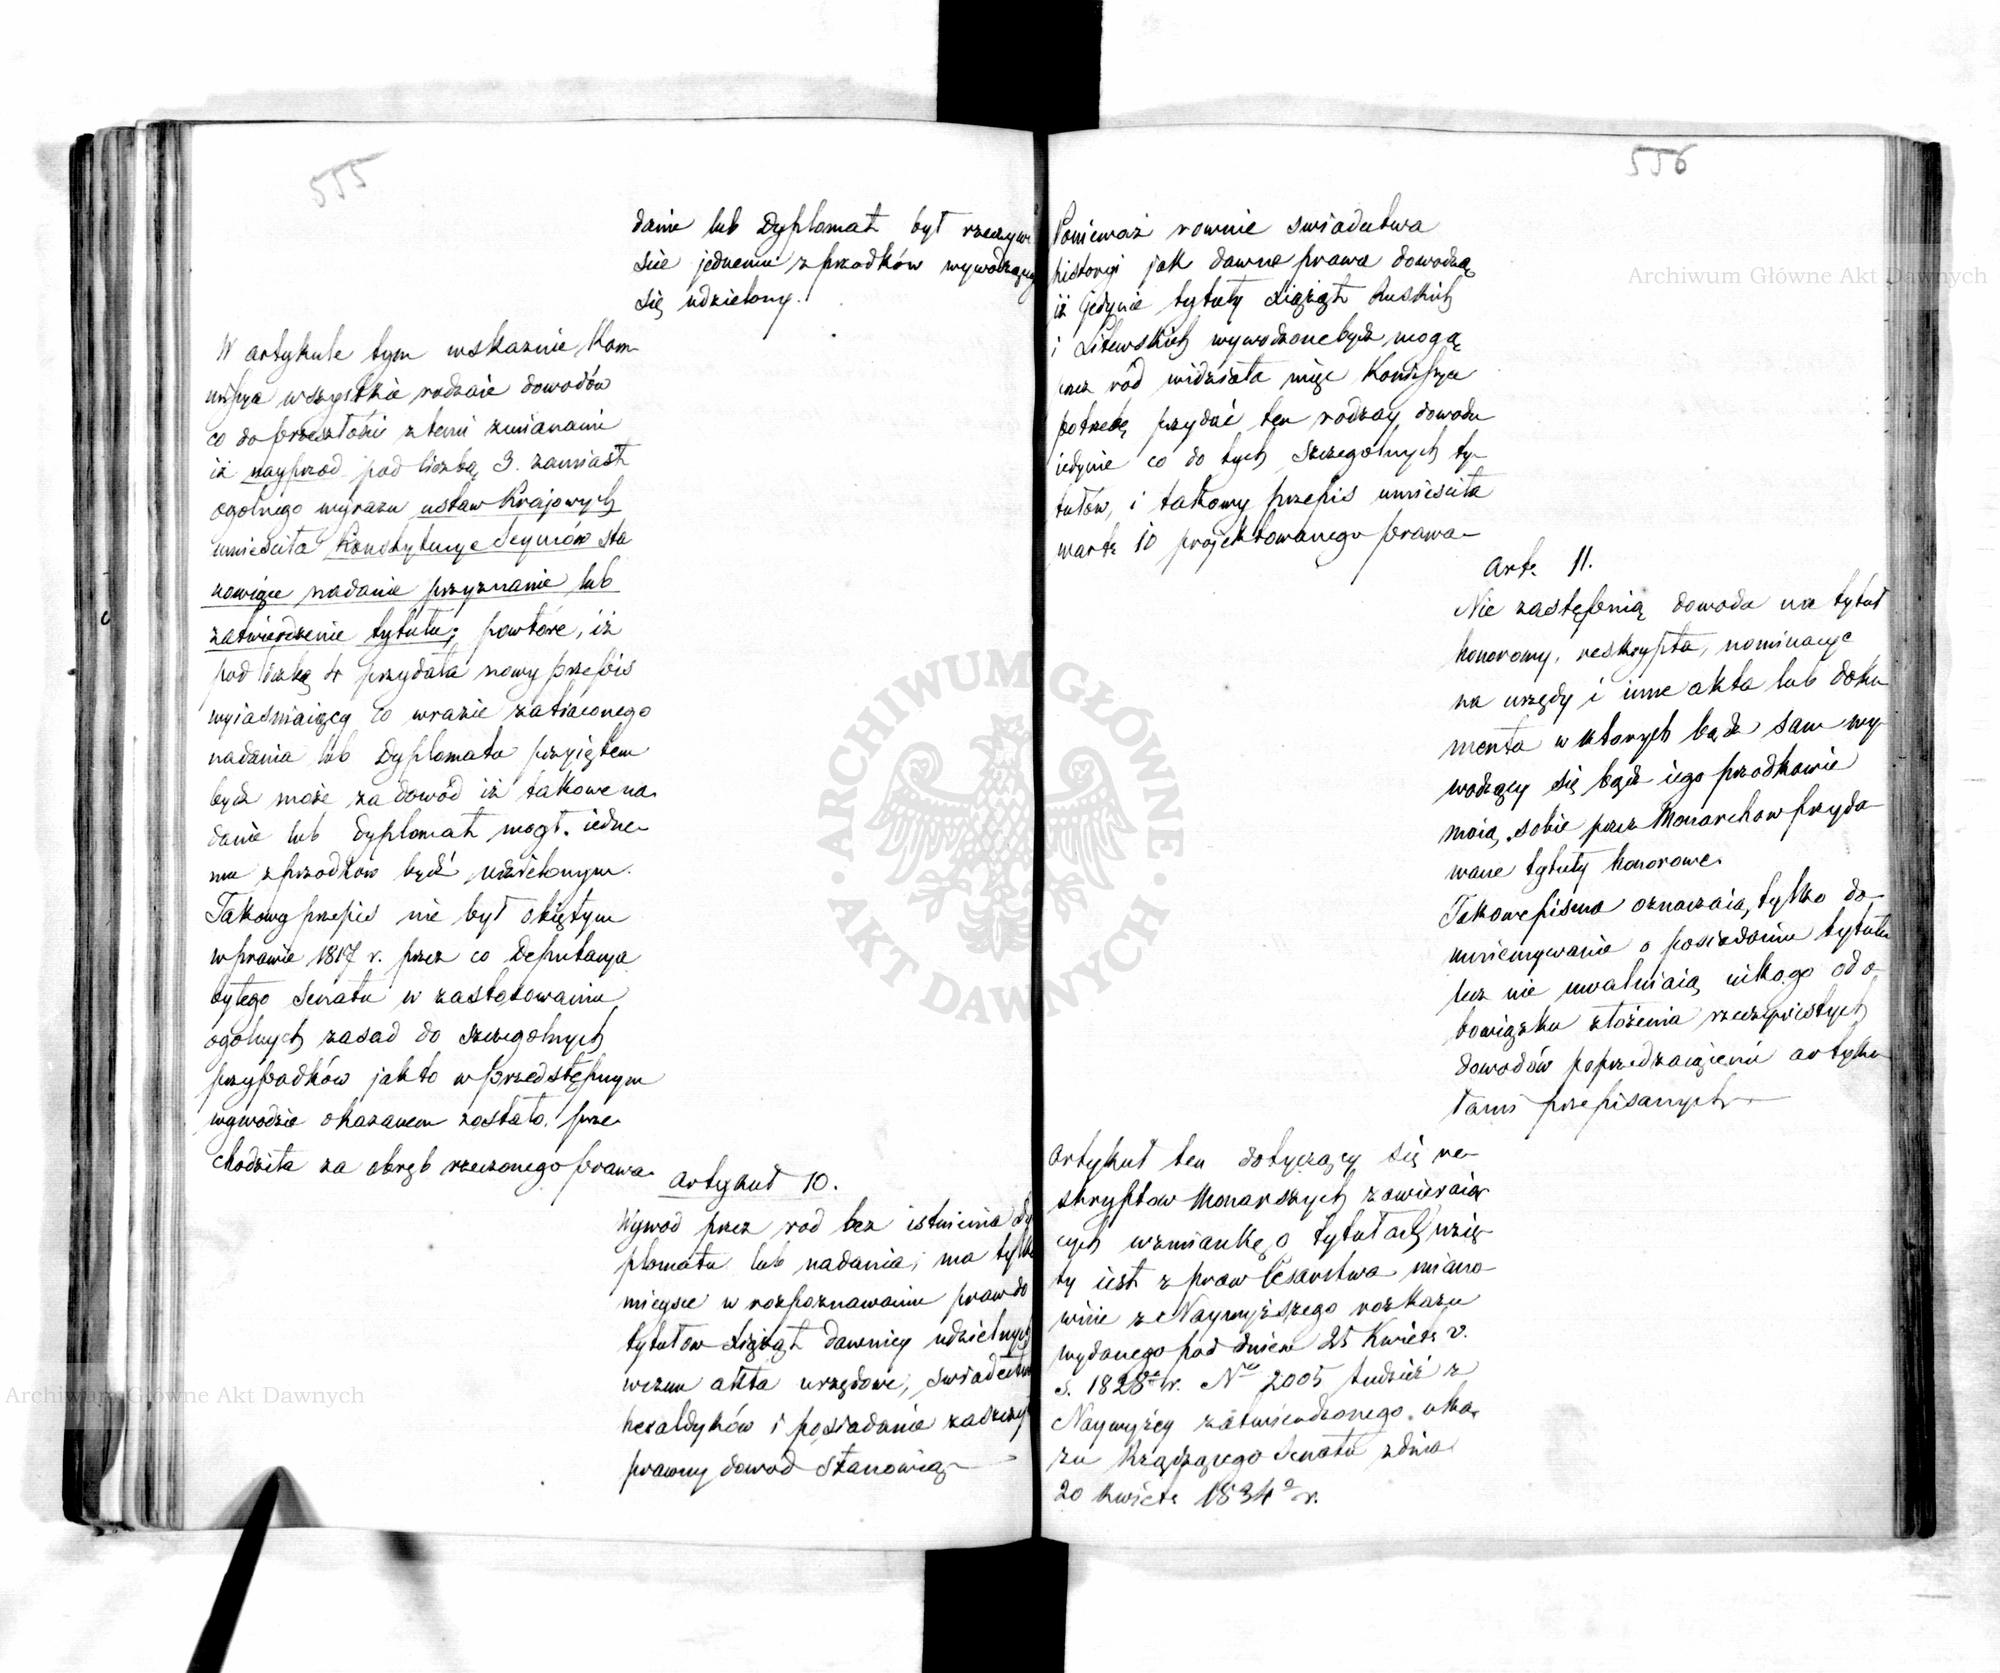 555
danie lub Dyplomat był rzeczywi
ście jednemu z przodków wywodzącego
się udzielony.
W artykule tym wskaznie Kom
missya wszystkie rodzaie dowodów
co do przeszłości z temi zmianami
iż nayprzod pod liczbą 3. zamiast
ogolnego wyrazu ustaw Krajowych
umieściła Konstytucye Seymów sta
nowiące nadanie przyznanie lub
zatwierdzenie tytułu; powtóre, iż
pod liczbą 4 przydała nowy przepis
wyiaśniaiący co wrazie zatraconego
nadania lub Dyplomatu przyiętem
bydź może za dowód iż takowe na
danie lub Dyplomat mogł iedne
mu z przodków bydź udzielonym.
Takowy przepis nie był obiętym
w prawie 1817 r. przez co Deputacya
bytego Senatu w zastosowaniu
ogólnych zasad do szczegolnych
przypadków jak to w przedstępnym
wywodzie okazanem zostało, prze
chodziła za obręb rzeczonego prawa
Artykuł 10.
Wywod przez rod bez istnienia Dy
plomatu lub nadania, ma tylko
mieysce w rozpoznawaniu praw do
tytułow Xiążąt dawniey udzielnych
wczem akta urzędowe, świadectwa
heraldyków i posiadanie zaszczytu
prawny dowod stanowią
556
Ponieważ rownie swiadectwa
historyi jak dawne prawa dowodzą
iż jedynie tytuły Xiążąt Ruskich
i Litewskich wywodzone bydź mogą
przez ród widziała więc Komissya
potrzebę przydać ten rodzay dowodu
iedynie co do tych szczegolnych ty
tułów, i takowy przepis umieściła
w art: 10 projektowanego prawa
Art: 11.
Nie zastępuią dowodu na tytuł
honorowy, reskrypta, nominacye
na urzędy i inne akta lub doku
menta w ktorych bądź sam wy
wodzący się bądź iego przodkowie
maią sobie przez Monarchow przyda
wane tytuły honorowe.
Takowe pisma oznaczaią tylko do
mniemywanie o posiadaniu tytułu
lecz nie uwalniaią nikogo od o
bowiązku złożenia rzeczywistych
dowodów poprzedzaiącemi artyku
łami przepisanych
Artykuł ten dotyczący się re
skryptow Monarszych zawieraią
cych wzmiankę o tytułach, wzię
ty iest z praw Cesarstwa miano
wicie z Naywyższego rozkazu
wydanego pod dniem 25 Kwiet: v.
s. 1828 r. No 2005 tudzież z
Naywyżey zatwierdzonego uka
zu Rządzącego Senatu z dnia
20 Kwiet: 1834 r.
Archiwum Główne Akt Dawnych
Archiwum Główne Akt Dawnych
ARCHIWUM GŁÓWNE
AKT DAWNYCH